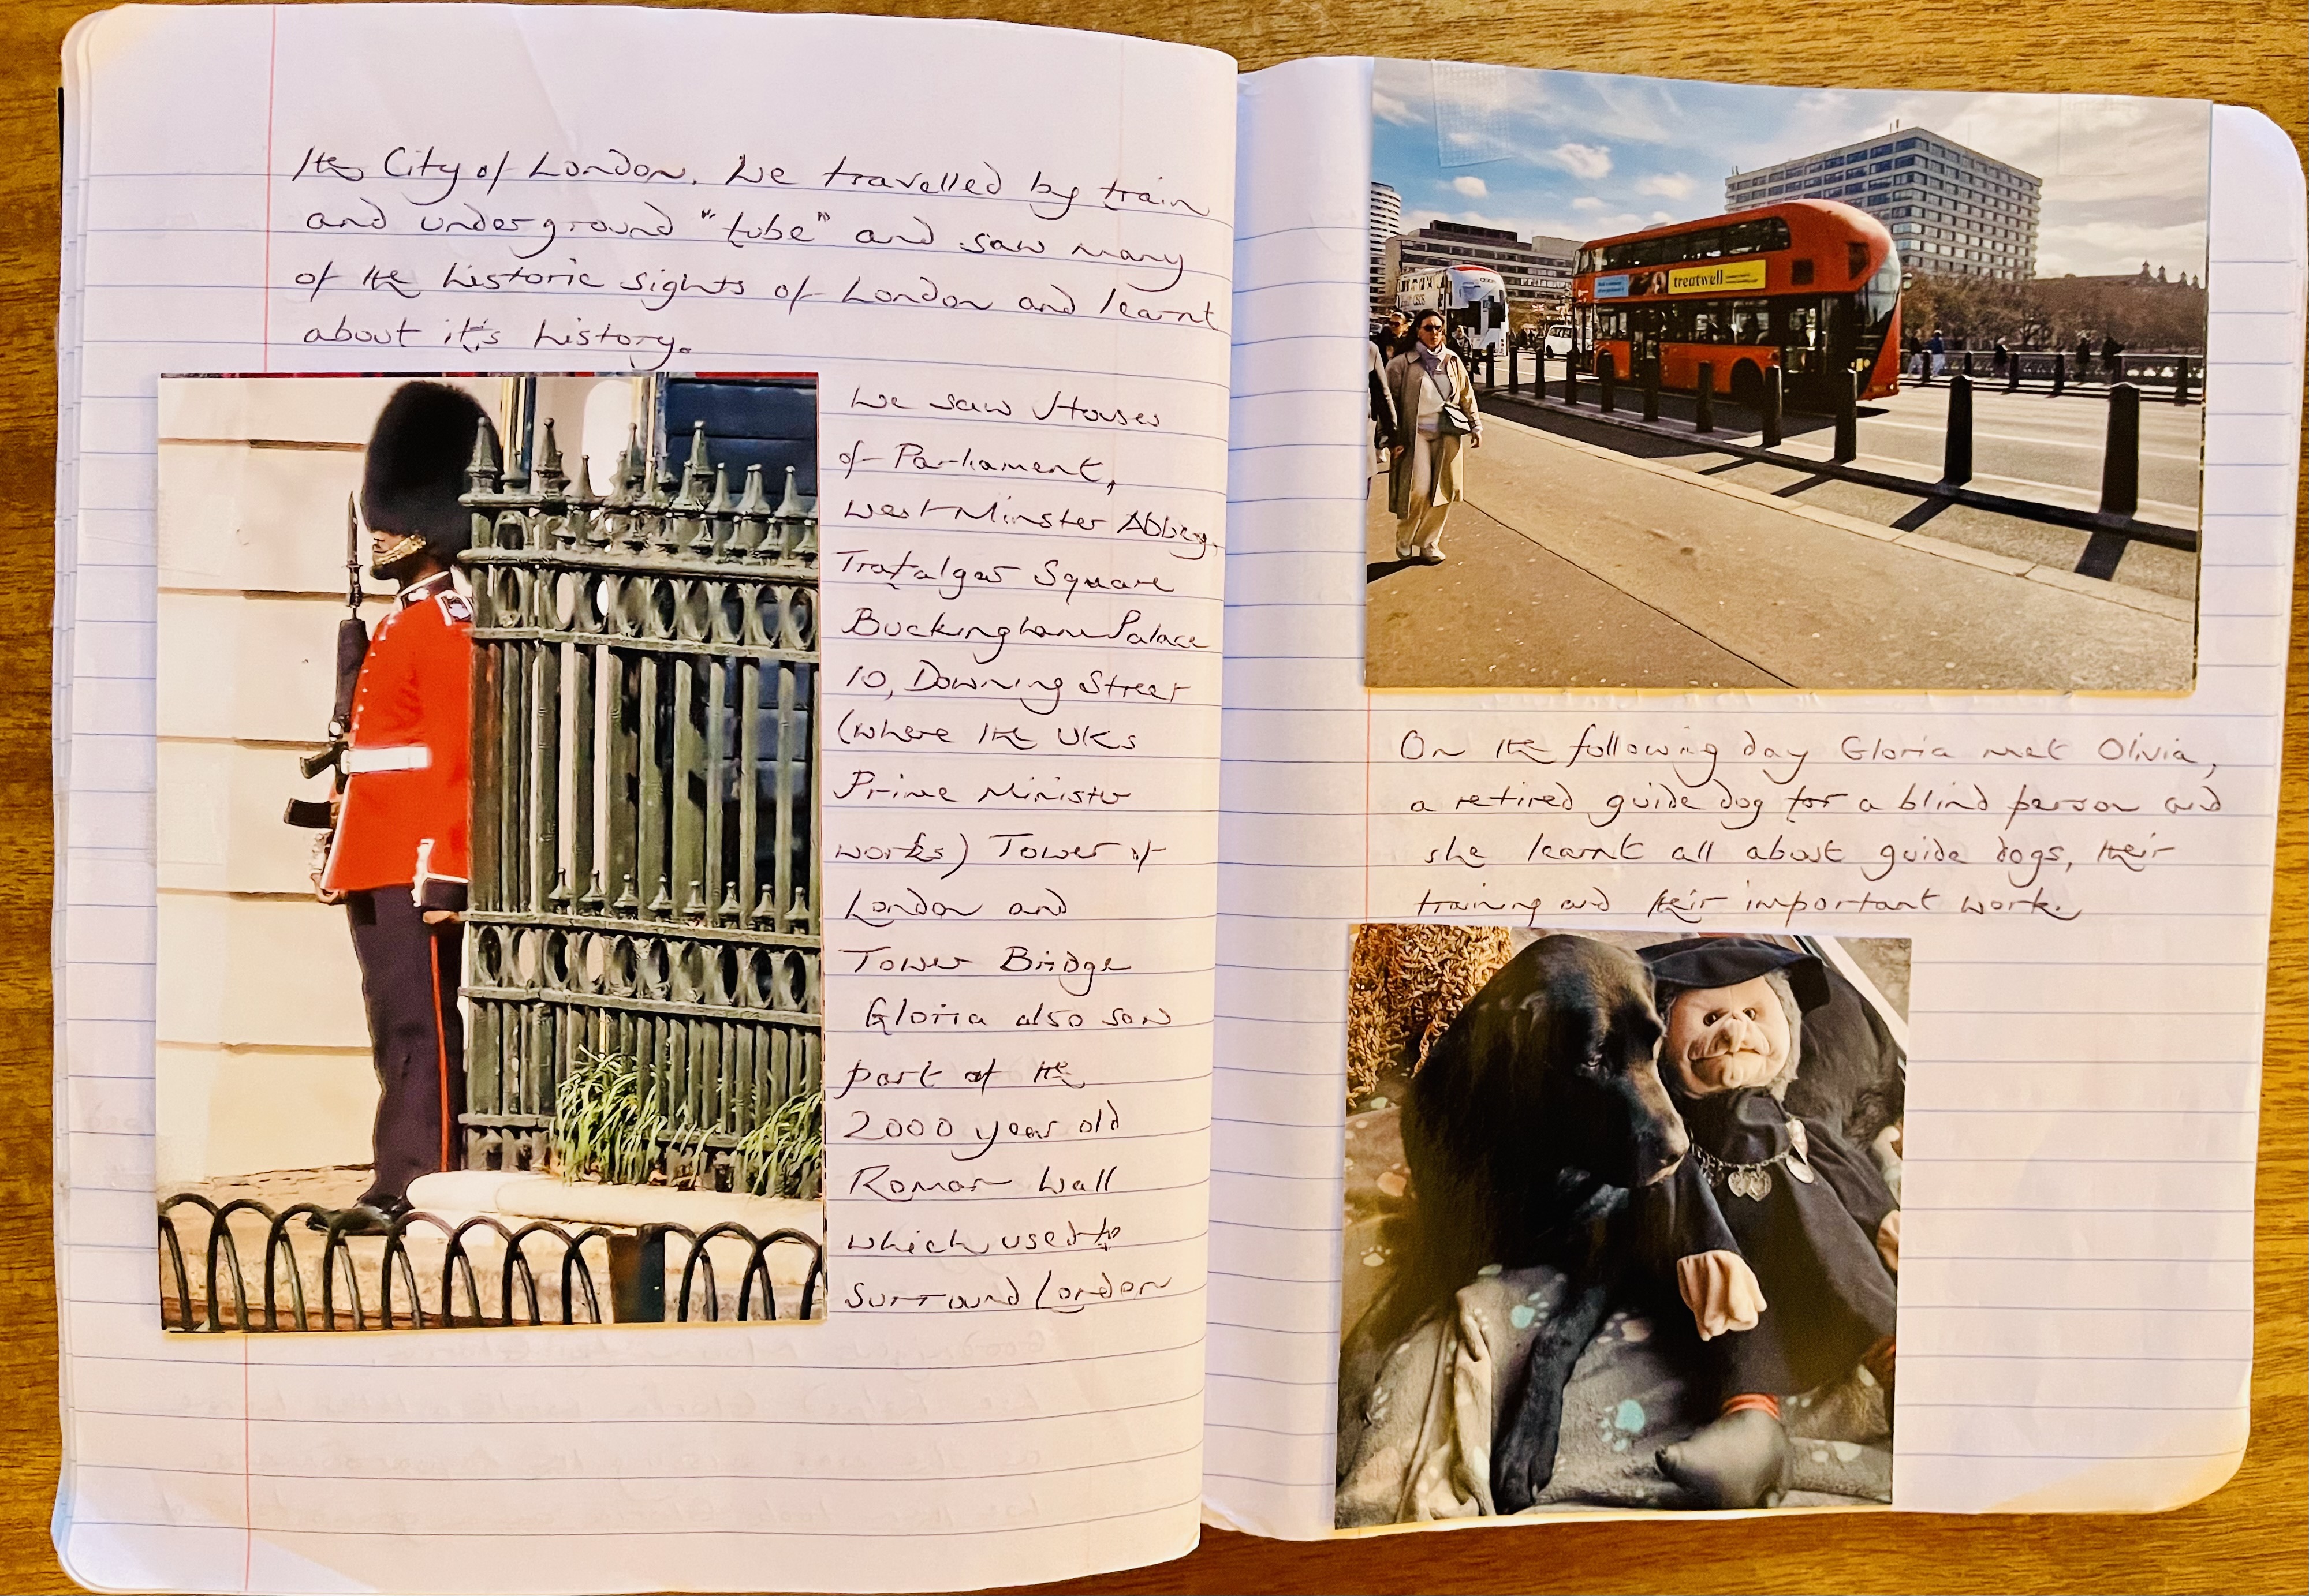 the City of London. We travelled by train
and underground "tube" and saw many
of the historic sights of London and learnt
about it's history.
We saw Houses
of Parliament,
West Minster Abbey,
Trafalgar Square
Buckingham Palace
10, Downing Street
(where the UKs
Prime Minister
works) Tower of
London and
Tower Bridge
Gloria also saw
part of the
2000 year old
Roman Wall
which used to
surround London
treatwell
On the following day Gloria met Olivia,
a retired guide dog for a blind person and
she learnt all about guide dogs, their
training and their important work.